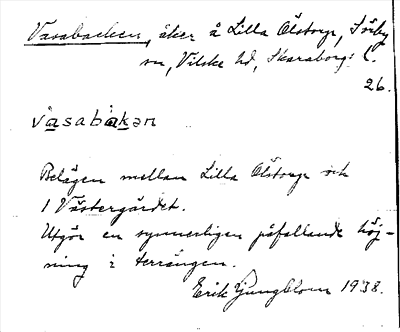 Vasabacken, åker å Lilla Ölstorp, Sörby
sn, Vilske hd, Skaraborgs l.
26.
våsabàkən
Belägen mellan Lilla Ölstorp och
1 Västergärdet.
Utgör en synnerligen påfallande höj-
ning i terrängen.
Erik Ljungblom 1938.